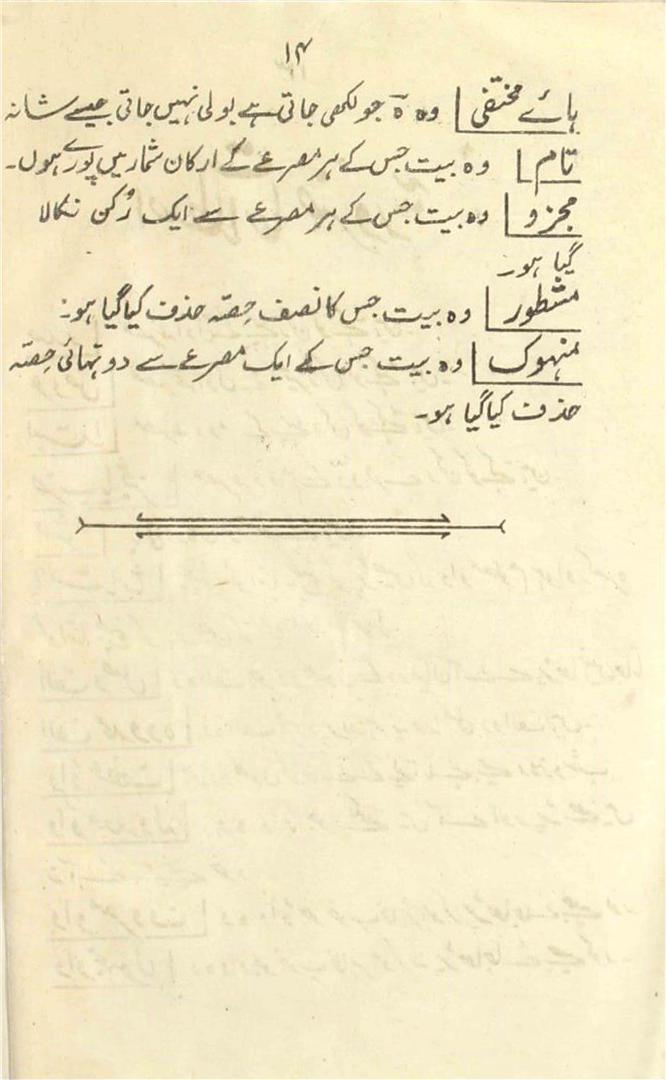 ۱۴
ہائے مختفی وہ ہ جو لکھی جاتی ہے بولی نہیں جاتی جیسے شانہ
تام وہ بیت جس کے ہر مصرعے کے ارکان شمار میں پورے ہوں۔
مجزو وہ بیت جس کے ہر مصرعے سے ایک رُکن نکالا
گیا ہو۔
مشطور وہ بیت جس کا نصف حِصّہ حذف کیا گیا ہو:
منہوک وہ بیت جس کے ایک مصرعے سے دو تہائی حِصّہ
حذف کیا گیا ہو۔